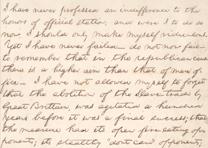 I have never professed an indifference to the
honors of official station; and were I to do so
now I should only make myself ridiculous.
Yet I have never failed—do not now fail—
to remember that in the republican cause
there is a higher aim than that of mere of-
fice. I have not allowed myself to forget
that the abolition of the Slave-trade by
Great Brittain, was agitated a hundred
years before it was a final success; that
the measure had its open fire-eating op-
ponents; its stealthy "don't care" opponents;